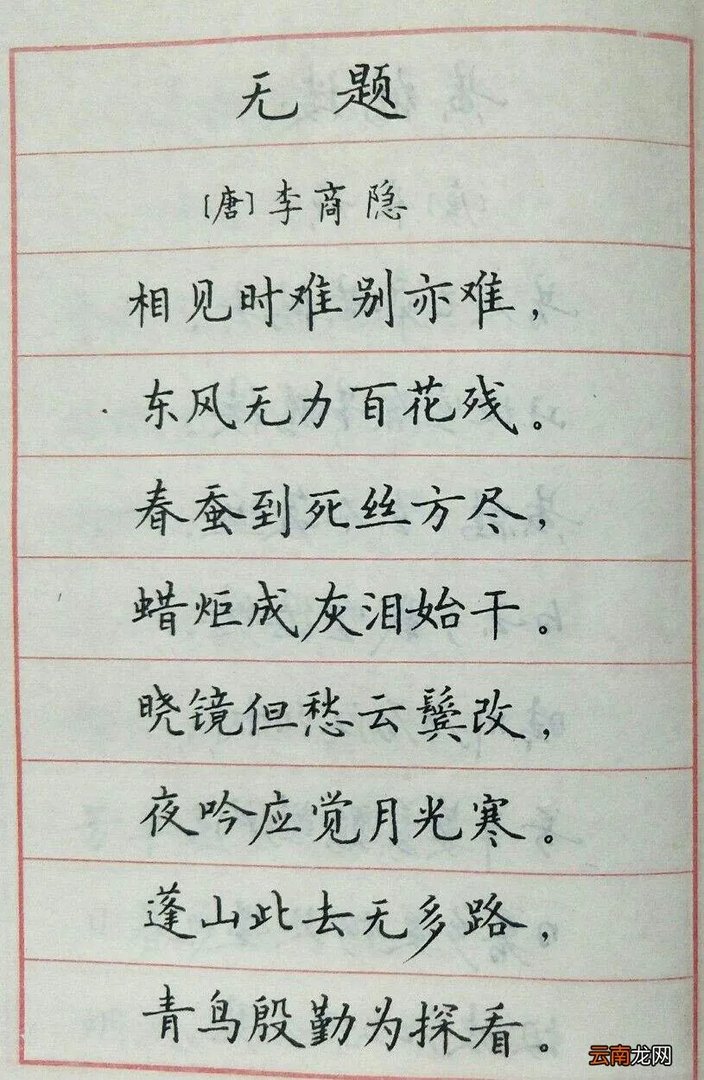 无题
[唐]李商隐
相见时难别亦难，
东风无力百花残。
春蚕到死丝方尽，
蜡炬成灰泪始干。
晓镜但愁云鬓改，
夜吟应觉月光寒。
蓬山此去无多路，
青鸟殷勤为探看。
云南龙网